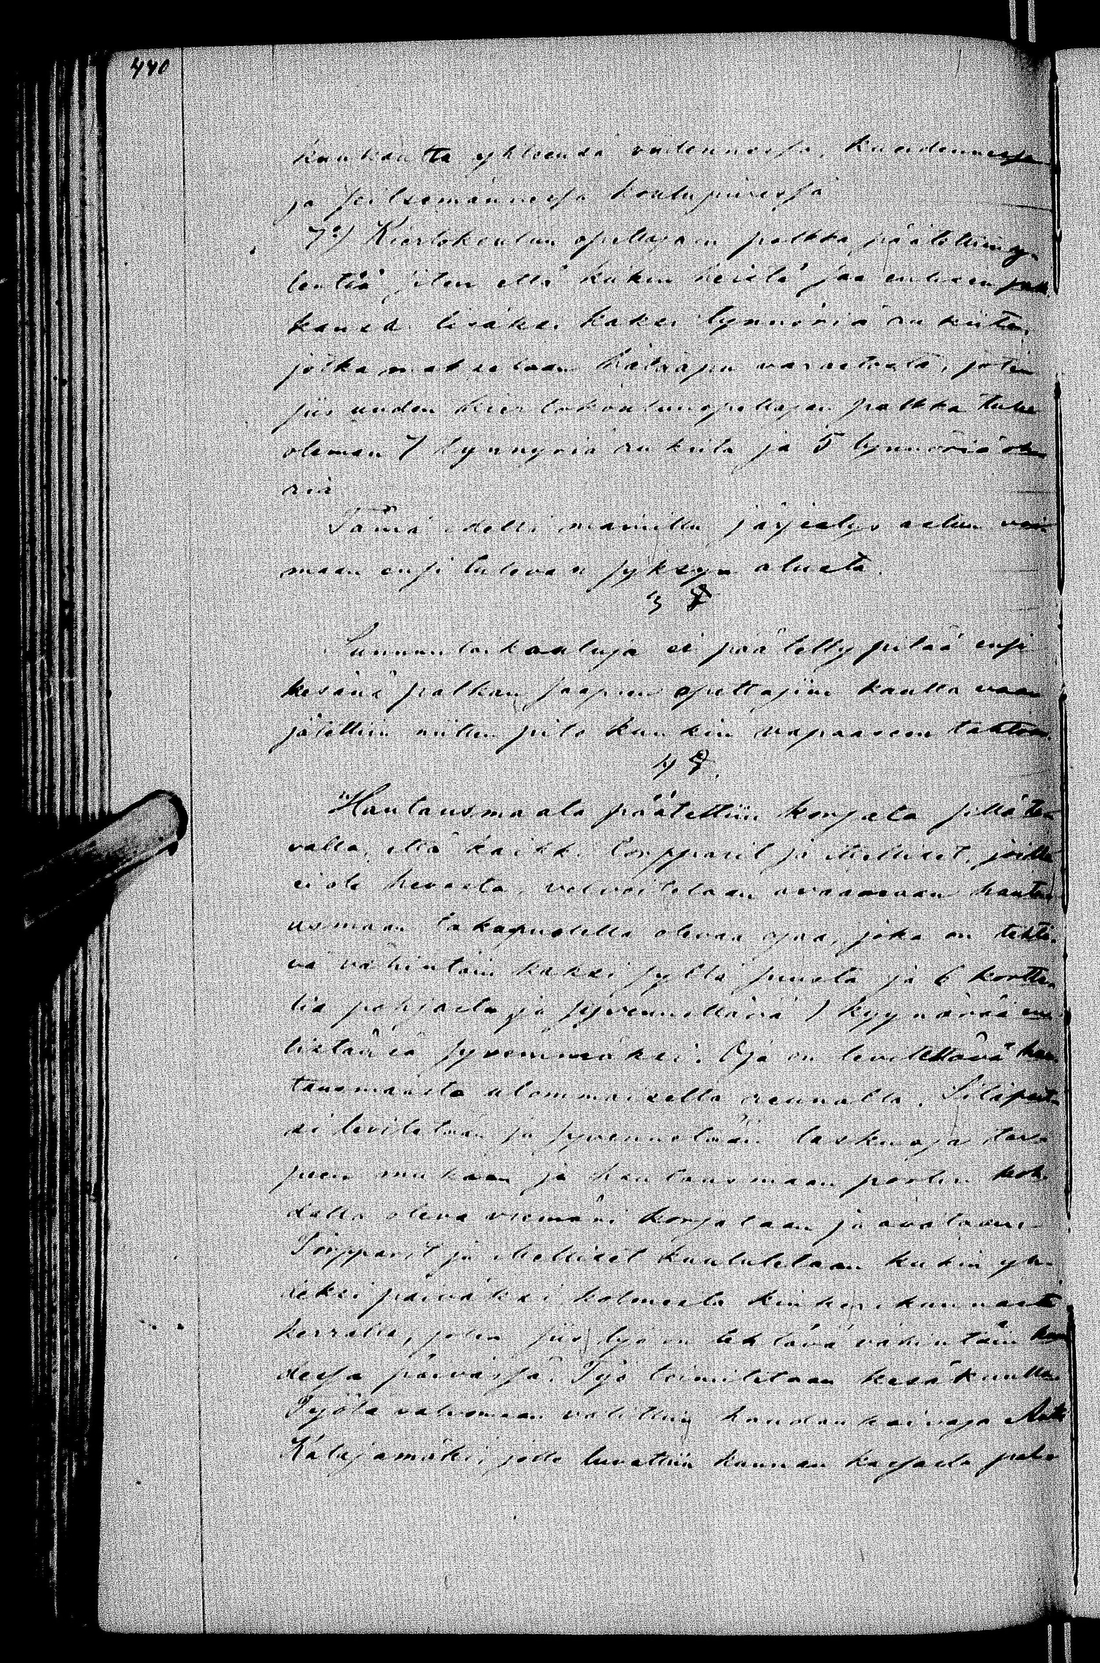 440
kuukautta yhteensä viidennessä, kuudennessa
ja seitsemännessä koulupiirissä
7:o) Kiertokoulun opettajain palkka päätettiin y-
lentää siten että kukin heistä saa entisen pal-
kansa lisäksi kaksi tynnöriä rukiita,
jotka maksetaan hätäapu varastosta, joten
siis uuden kiertokoulunopettajan palkka tulee
olemaan 7 tynnyriä rukiita ja 5 tynnöriä oh-
ria
Tämä edellä mainittu järjestys astuu voi-
maan ensi tulevan syksyn alusta.
3 §
Sunnuntaikouluja ei päätetty pitää ensi
kesänä palkan saapien opettajien kautta vaan
jätettiin niiden pito kunkin vapaaseen tahtoon.
4 §.
Hautausmaata päätettiin korjata sillä ta-
valla, että kaikki torpparit ja Melliset, joilla
ei ole hevosta, velvoitetaan avaamaan hauta-
usmaan takapuolella olevaa ojaa, joka on tehtä-
vä vähintäin kaksi syltä suusta ja 6 kortte-
lia pohjasta ja syvennettävä 1 kyynärää en-
tistänsä syvemmäksi. Oja on levitettävä hau-
tausmaasta ulommaisella reunalla. Sitäpait-
si levitetään ja syvennetään laskuoja tar-
peen mukaan ja hautausmaan portin koh-
dalla oleva viemäri korjataan ja avataan.
Torpparit ja Melliset kuulutetaan kukin yh-
deksi päiväksi kolmesta kinkerikunnasta
kerralla, joten siis työ on tehtävä vähintäin
dessa päivässä. Työ toimitetaan kesäkuulla.
Työtä valvomaan valittiin haudankaivaja Antti
Katajamäki, jolle luvattiin kunnan kassasta palk-